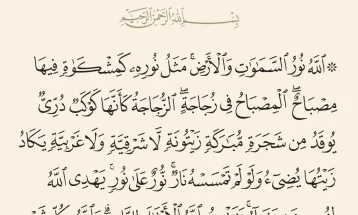 بِسْمِ ٱللَّهِ ٱلرَّحْمَٰنِ ٱلرَّحِيمِ
۞ ٱللَّهُ نُورُ ٱلسَّمَٰوَٰتِ وَٱلْأَرْضِ ۚ مَثَلُ نُورِهِۦ كَمِشْكَوٰةٍ فِيهَا
مِصْبَاحٌ ۖ ٱلْمِصْبَاحُ فِى زُجَاجَةٍ ۖ ٱلزُّجَاجَةُ كَأَنَّهَا كَوْكَبٌ دُرِّىٌّ
يُوقَدُ مِن شَجَرَةٍ مُّبَٰرَكَةٍ زَيْتُونَةٍ لَّا شَرْقِيَّةٍ وَلَا غَرْبِيَّةٍ يَكَادُ
زَيْتُهَا يُضِىٓءُ وَلَوْ لَمْ تَمْسَسْهُ نَارٌ ۚ نُّورٌ عَلَىٰ نُورٍ ۗ يَهْدِى ٱللَّهُ